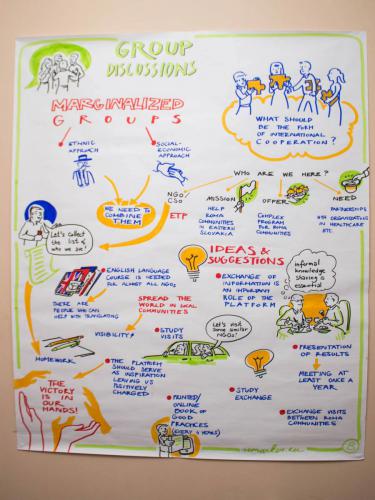 GROUP
DISCUSSIONS
MARGINALIZED
GROUPS
ETHNIC
APPROACH
SOCIAL-
ECONOMIC
APPROACH
WHAT SHOULD
BE THE FORM
OF INTERNATIONAL
COOPERATION?
WE NEED TO
COMBINE
THEM
WHO ARE WE HERE?
NGO/
CSO
ETP
MISSION
HELP
ROMA
COMMUNITIES
IN EASTERN
SLOVAKIA
OFFER
COMPLEX
PROGRAM
FOR ROMA
COMMUNITIES
NEED
PARTNERSHIPS
WITH ORGANIZATIONS
IN HEALTHCARE
ETC.
Let's collect
the list of
who we are!
IDEAS &
SUGGESTIONS
ENGLISH LANGUAGE
COURSE IS NEEDED
FOR ALMOST ALL NGOs
THERE ARE
PEOPLE WHO CAN
HELP WITH TRANSLATING
SPREAD THE
WORD IN LOCAL
COMMUNITIES
VISIBILITY!
HOMEWORK
EXCHANGE OF
INFORMATION IS
AN IMPORTANT
ROLE OF THE
PLATFORM
Informal
knowledge
sharing is
essential
STUDY
VISITS
Let's visit
some similar
NGOs!
THE PLATFORM
SHOULD SERVE
AS INSPIRATION
LEAVING US
POSITIVELY
CHARGED
THE
VICTORY IS
IN OUR
HANDS!
PRINTED/
ONLINE
BOOK OF
GOOD
PRACTICES
(EVERY 4 YEARS)
STUDY
EXCHANGE
PRESENTATION
OF RESULTS
MEETING AT
LEAST ONCE A
YEAR
EXCHANGE VISITS
BETWEEN ROMA
COMMUNITIES